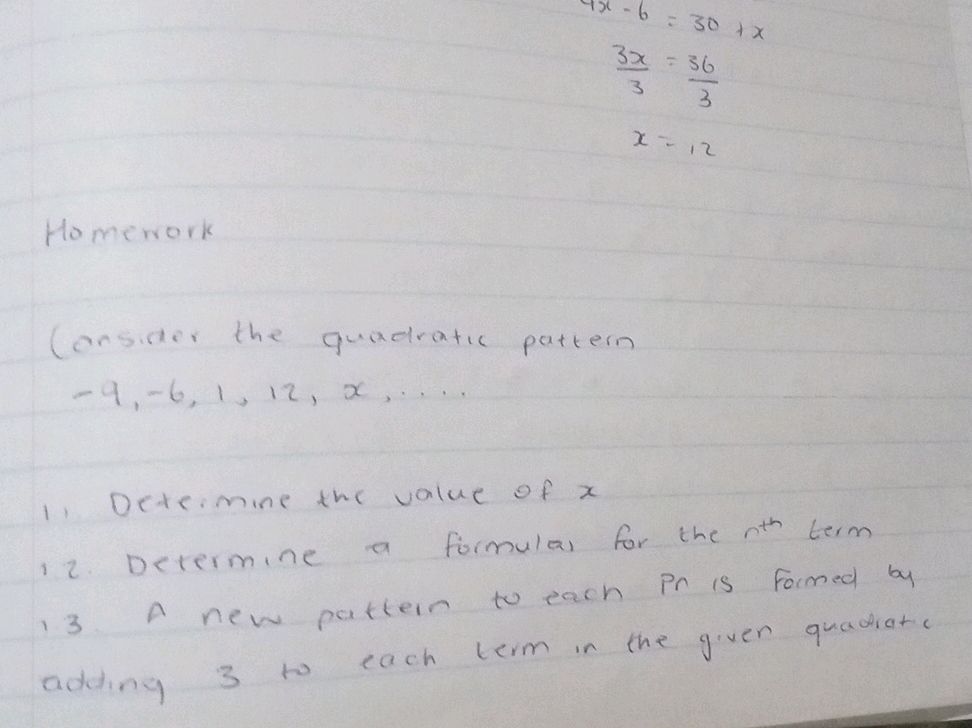 4x - 6 = 30 + x
3x/3 = 36/3
x = 12
Homework
Consider the quadratic pattern
-9, -6, 1, 12, x, ....
1.1 Determine the value of x
1 2. Determine a formular for the nth term
1 3. A new pattern to each Pn is formed by
adding 3 to each term in the given quadratic